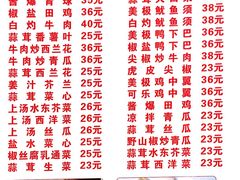 酱爆青瓜 36元
白灼牛肉 40元
蒜茸番薯叶 25元
牛肉炒西兰花 36元
牛肉炒青瓜 36元
蒜茸西兰花 25元
姜汁芥兰 25元
盐水菜心 25元
上汤水东芥菜 26元
上汤西洋菜 26元
上汤丝瓜 26元
椒丝腐乳通菜 25元
蒜茸生菜 23元
美极鱿鱼须 38元
白灼鱿鱼须 38元
美极鸭下巴 36元
椒盐鸭下巴 36元
尖椒炒牛肉 36元
虎皮尖椒 23元
美极鸡中翼 36元
可乐鸡中翼 36元
酱爆田鸡 38元
凉拌青瓜 23元
蒜茸丝瓜 23元
野山椒炒青瓜 23元
蒜茸水东芥菜 23元
蒜茸西洋菜 23元